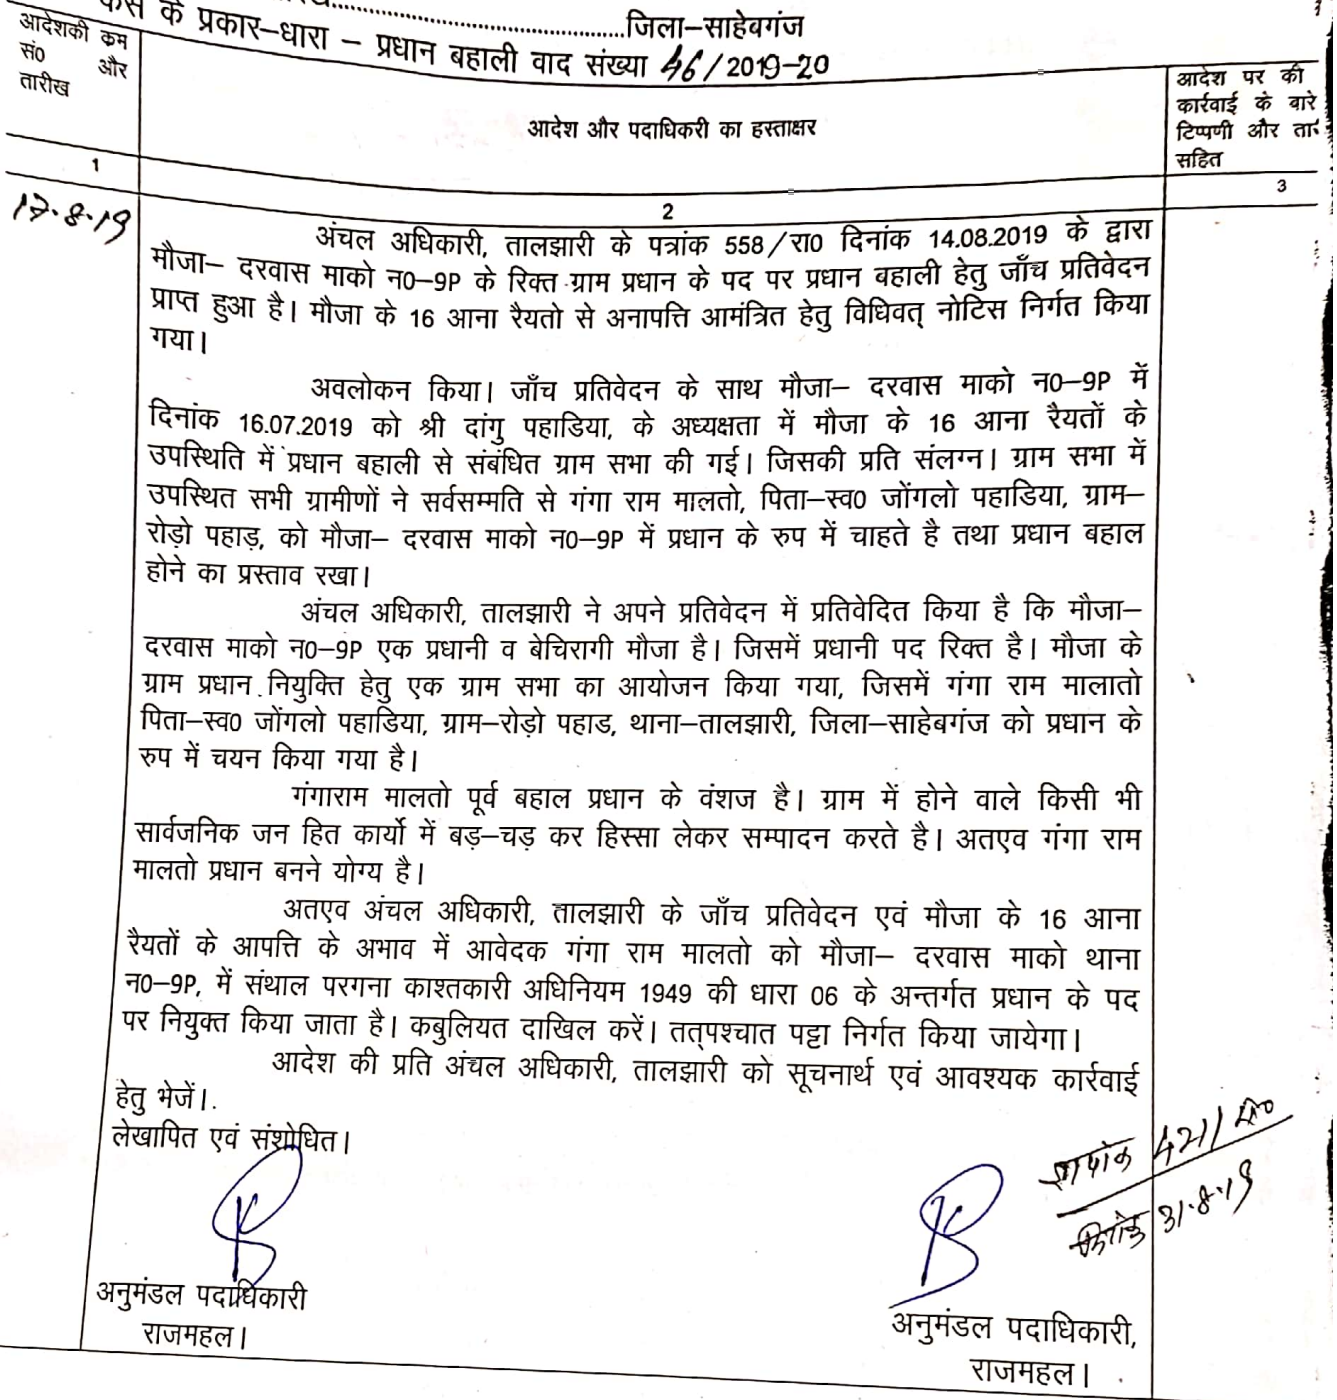 जिला–साहेबगंज
के प्रकार–धारा – प्रधान बहाली वाद संख्या 46/2019-20
आदेशकी कम
सं0 और
तारीख
आदेश और पदाधिकरी का हस्ताक्षर
आदेश पर की
कार्रवाई के बारे
टिप्पणी और
सहित
1
2
3
17.8.19
अंचल अधिकारी, तालझारी के पत्रांक 558/रा0 दिनांक 14.08.2019 के द्वारा
मौजा– दरवास माको न0–9P के रिक्त ग्राम प्रधान के पद पर प्रधान बहाली हेतु जाँच प्रतिवेदन
प्राप्त हुआ है। मौजा के 16 आना रैयतो से अनापत्ति आमंत्रित हेतु विधिवत् नोटिस निर्गत किया
गया।
अवलोकन किया। जाँच प्रतिवेदन के साथ मौजा– दरवास माको न0–9P में
दिनांक 16.07.2019 को श्री दांगु पहाडिया, के अध्यक्षता में मौजा के 16 आना रैयतों के
उपस्थिति में प्रधान बहाली से संबंधित ग्राम सभा की गई। जिसकी प्रति संलग्न। ग्राम सभा में
उपस्थित सभी ग्रामीणों ने सर्वसम्मति से गंगा राम मालतो, पिता–स्व0 जोंगलो पहाडिया, ग्राम–
रोड़ो पहाड़, को मौजा– दरवास माको न0–9P में प्रधान के रुप में चाहते है तथा प्रधान बहाल
होने का प्रस्ताव रखा।
अंचल अधिकारी, तालझारी ने अपने प्रतिवेदन में प्रतिवेदित किया है कि मौजा–
दरवास माको न0–9P एक प्रधानी व बेचिरागी मौजा है। जिसमें प्रधानी पद रिक्त है। मौजा के
ग्राम प्रधान नियुक्ति हेतु एक ग्राम सभा का आयोजन किया गया, जिसमें गंगा राम मालातो
पिता–स्व0 जोंगलो पहाडिया, ग्राम–रोड़ो पहाड, थाना–तालझारी, जिला–साहेबगंज को प्रधान के
रुप में चयन किया गया है।
गंगाराम मालतो पूर्व बहाल प्रधान के वंशज है। ग्राम में होने वाले किसी भी
सार्वजनिक जन हित कार्यो में बड़–चड़ कर हिस्सा लेकर सम्पादन करते है। अतएव गंगा राम
मालतो प्रधान बनने योग्य है।
अतएव अंचल अधिकारी, तालझारी के जाँच प्रतिवेदन एवं मौजा के 16 आना
रैयतों के आपत्ति के अभाव में आवेदक गंगा राम मालतो को मौजा– दरवास माको थाना
न0–9P, में संथाल परगना काश्तकारी अधिनियम 1949 की धारा 06 के अन्तर्गत प्रधान के पद
पर नियुक्त किया जाता है। कबुलियत दाखिल करें। तत्पश्चात पट्टा निर्गत किया जायेगा।
आदेश की प्रति अंचल अधिकारी, तालझारी को सूचनार्थ एवं आवश्यक कार्रवाई
हेतु भेजें।
लेखापित एवं संशोधित।
ज्ञापांक 421/
दिनांक 31.8.19
अनुमंडल पदाधिकारी
राजमहल।
अनुमंडल पदाधिकारी,
राजमहल।